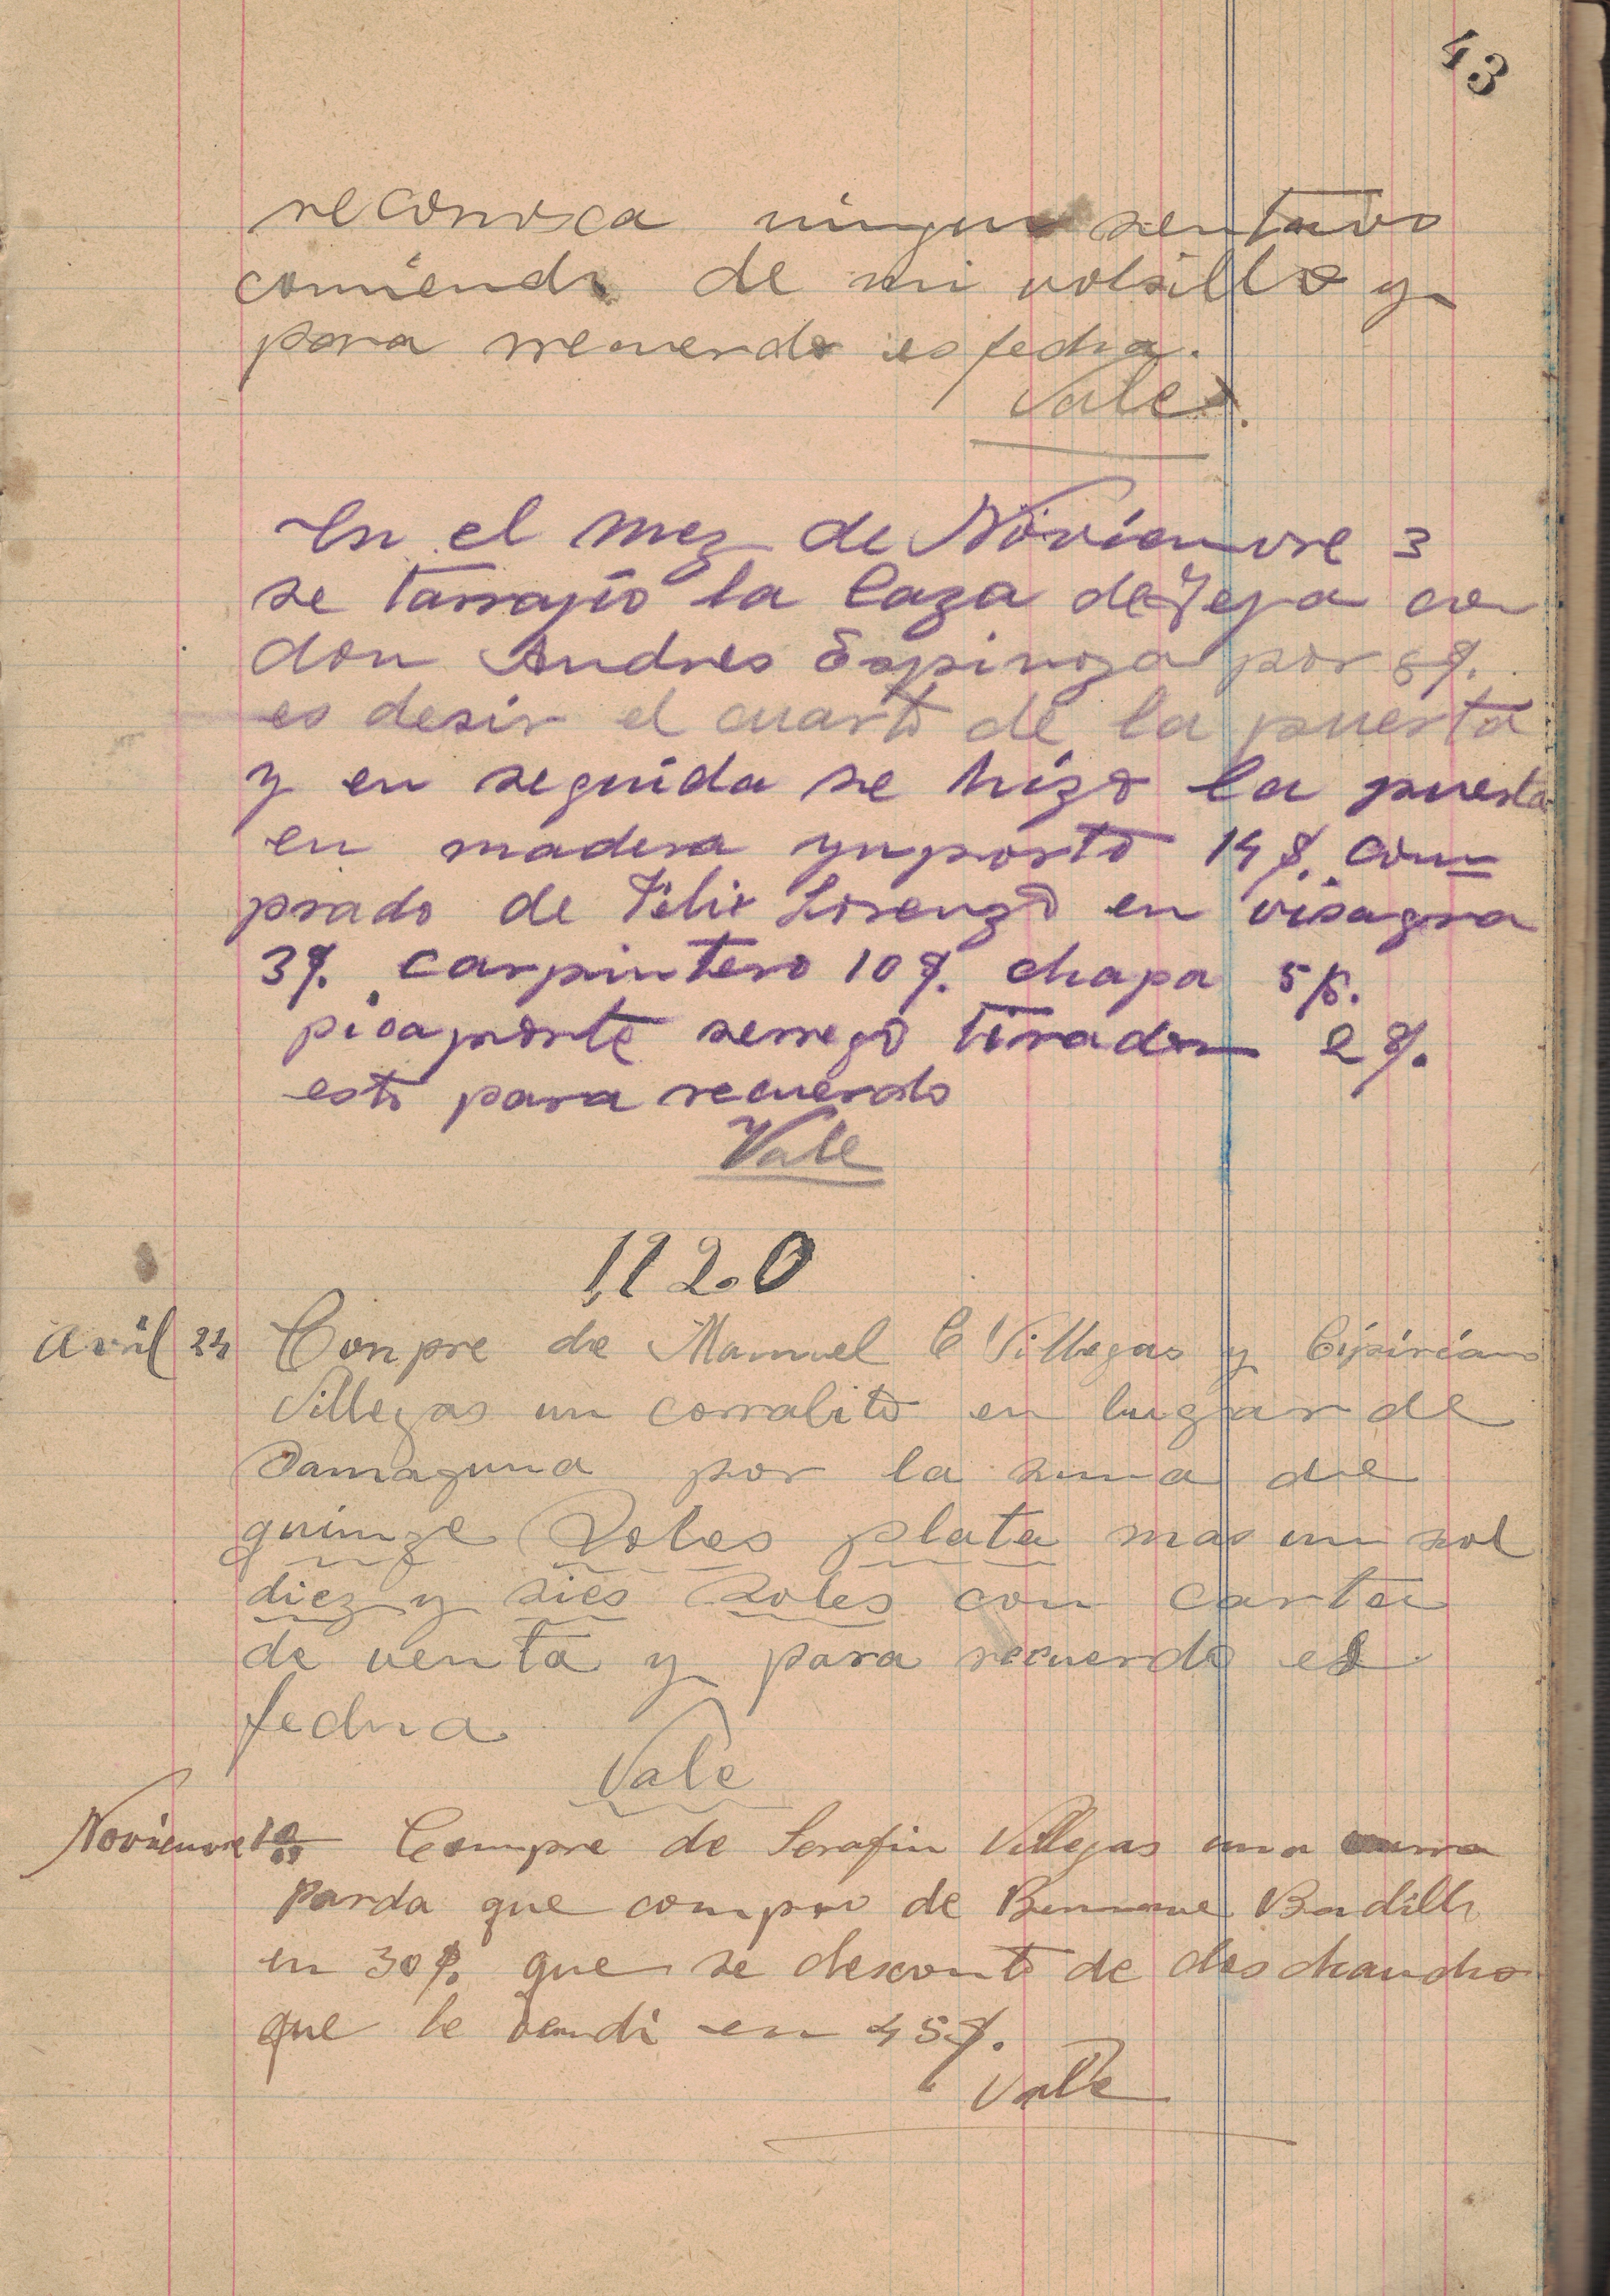 43
reconosca ningun sentavo
comiendo de mi volsillo y
para rrecuerdo es fecha.
Vale.
En el mez de Novienvre 3
se tarrajio la Caza de Teja con
don Andres Espinoza por 8$.
es desir el cuarto de la puerta
y en seguida se hizo la puerta
en madera ynporto 14$. com=
prado de Felix Lorenzo en visagra
3$. carpintero 10$. chapa 5$.
picaporte serrego tirador 2$.
esto para recuerdo
Vale
1920
Avril 24 Conpre de Manuel C Villegas y Cipiriano
Villegas un corralito en lugar de
Samaguna por la suma de
quinze Soles plata mas un sol
diez y sies Soles con carta
de venta y para recuerdo es
fecha
Vale
Novienvre 10 Compre de Serafin Villegas una burra
Parda que compro de Badillo
en 30$. que se desconto de dos chancho
que le vendi en 45$.
Vale